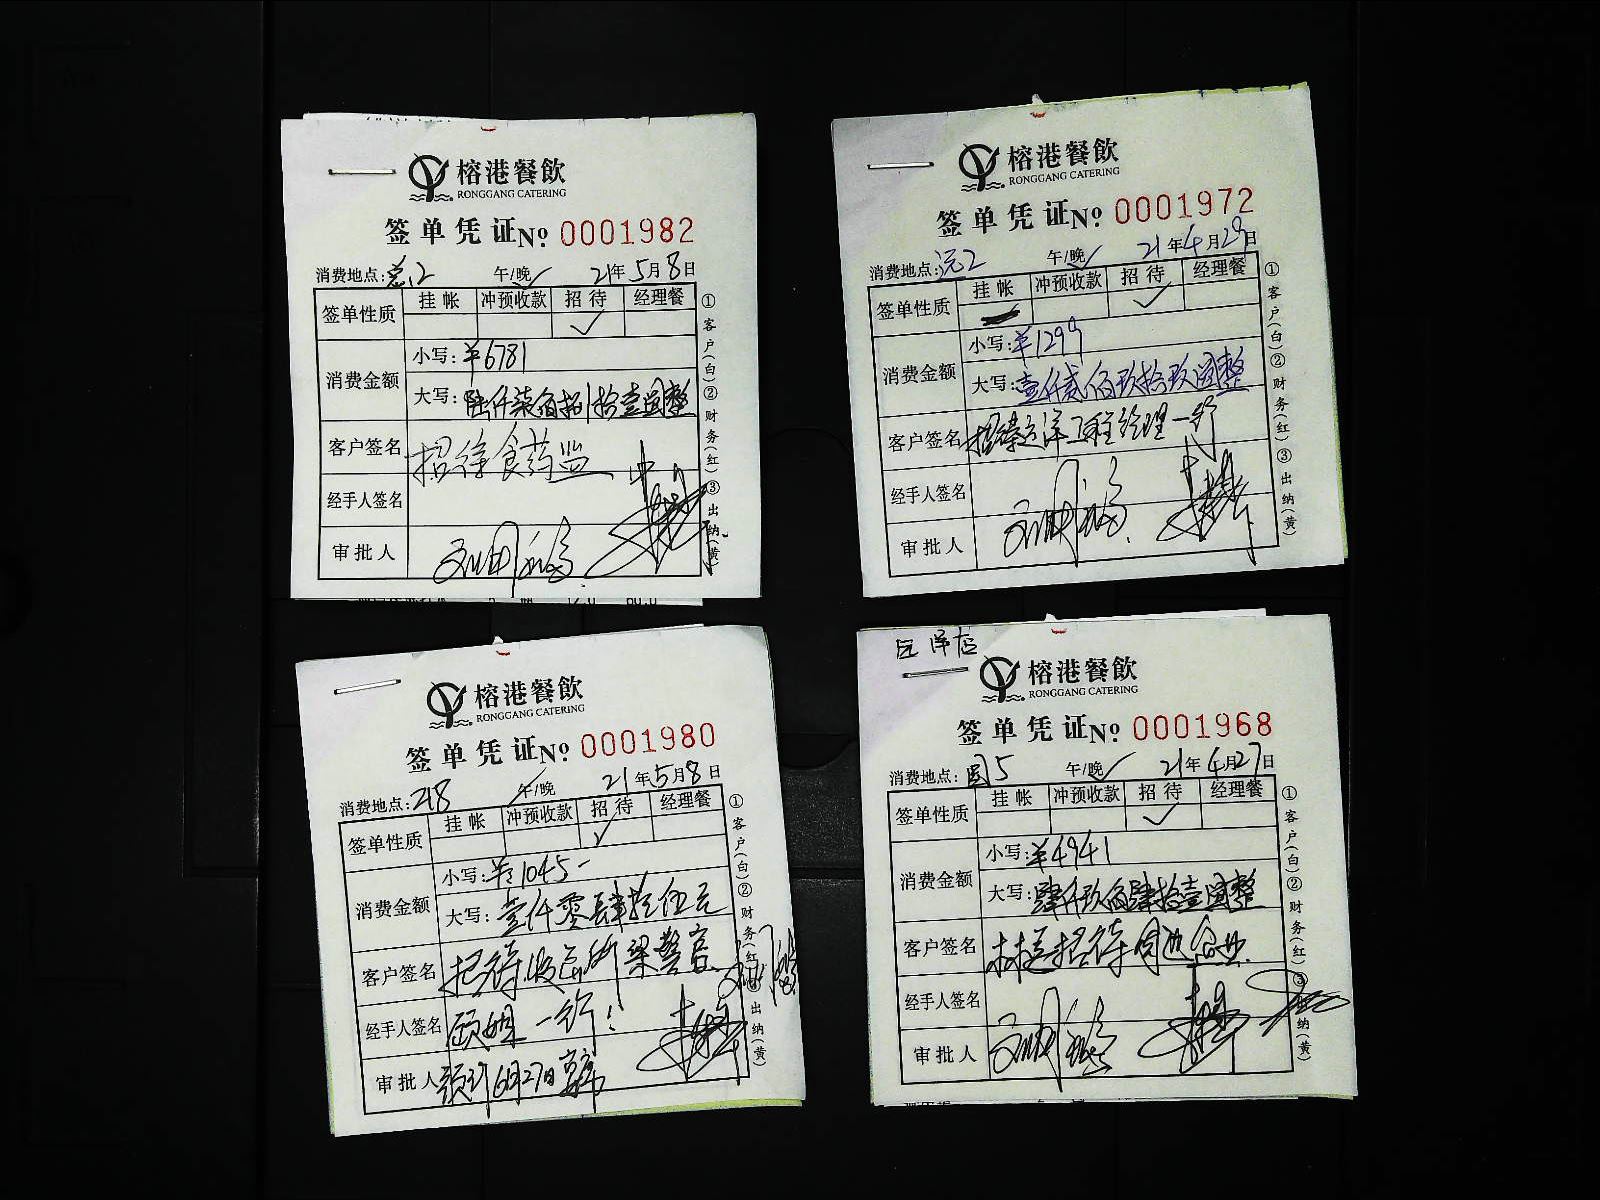 榕港餐飲
RONGGANG CATERING
签单凭证 № 0001982
消费地点: 2 午/晚✓ 21年5月8日
签单性质 挂帐 冲预收款 招待 经理餐
✓
消费金额 小写: ¥6781
大写: 陆仟柒佰捌拾壹圆整
客户签名 招待食药监
经手人签名
审批人
①客户(白)②财务(红)③出纳(黄)
榕港餐飲
RONGGANG CATERING
签单凭证 № 0001972
消费地点: 远2 午/晚✓ 21年4月29日
签单性质 挂帐 冲预收款 招待 经理餐
✓
消费金额 小写: ¥1299
大写: 壹仟贰佰玖拾玖圆整
客户签名 招待远洋工程经理一行
经手人签名
审批人
①客户(白)②财务(红)③出纳(黄)
榕港餐飲
RONGGANG CATERING
签单凭证 № 0001980
消费地点: 218 午/晚 21年5月8日
签单性质 挂帐 冲预收款 招待 经理餐
✓
消费金额 小写: ¥:1045-
大写: 壹仟零肆拾伍元
客户签名 招待 所梁警官
经手人签名 一行!
审批人 6月27日
①客户(白)②财务(红)③出纳(黄)
店
榕港餐飲
RONGGANG CATERING
签单凭证 № 0001968
消费地点: 5 午/晚✓ 21年4月27日
签单性质 挂帐 冲预收款 招待 经理餐
✓
消费金额 小写: ¥4941
大写: 肆仟玖佰肆拾壹圆整
客户签名 林 招待周边企业
经手人签名
审批人
①客户(白)②财务(红)③出纳(黄)